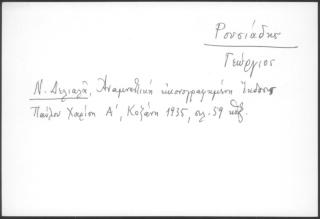 Ρουσιάδης
Γεώργιος
Ν. Δελιαλῆ, Ἀναμνηστική εἰκονογραφημένη Ἔκδοσις
Παύλου Χαρίση Α', Κοζάνη 1935, σελ. 59 κἑξ.